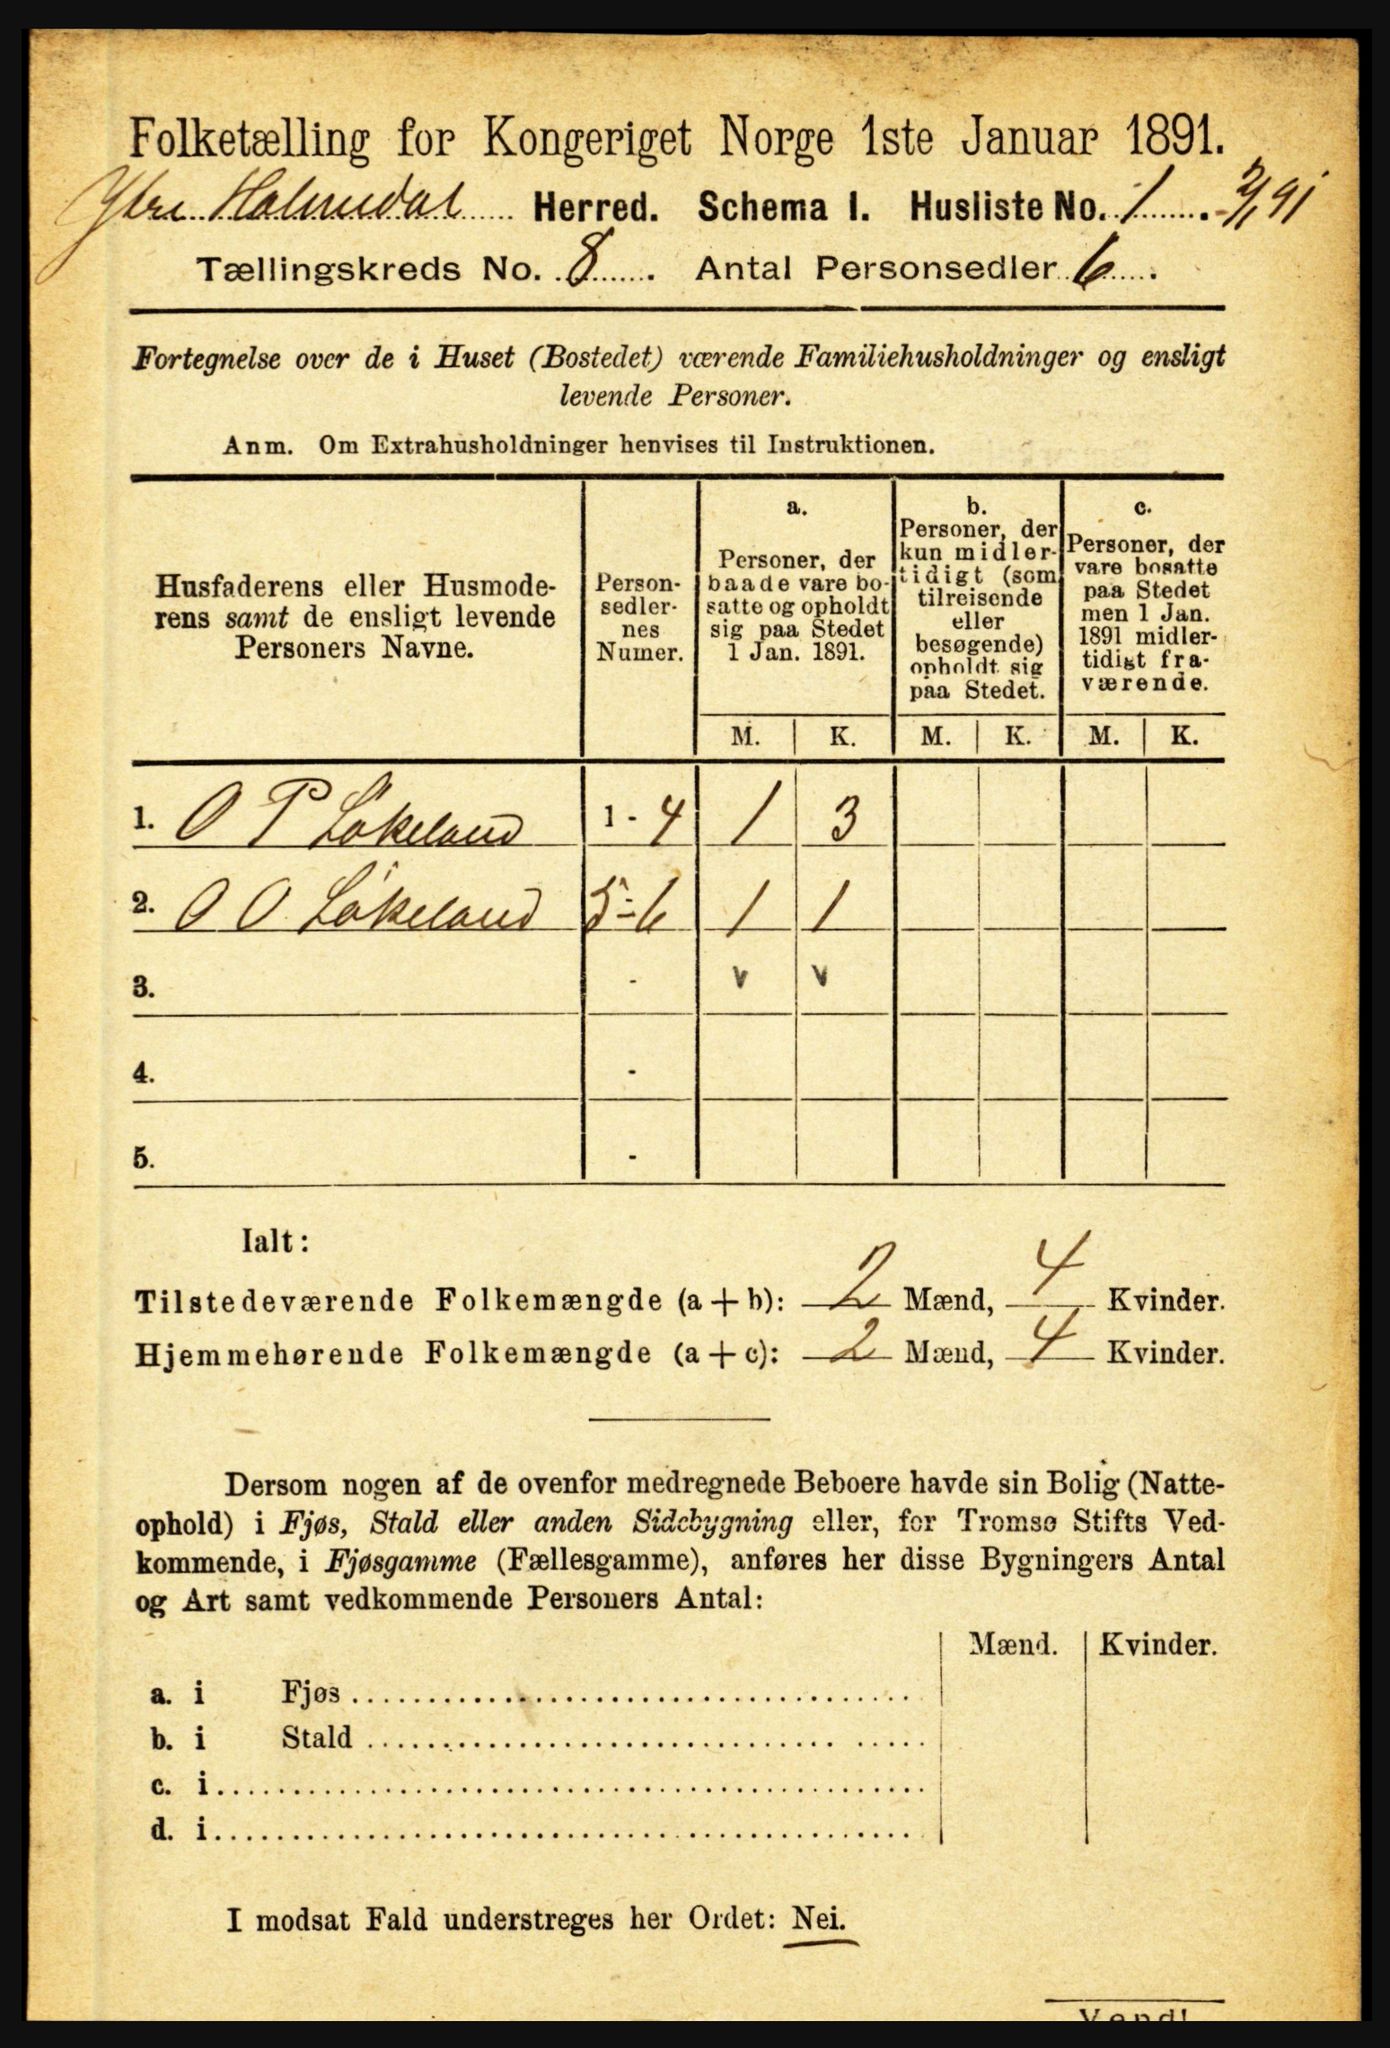 Folketælling for Kongeriget Norge 1ste Januar 1891.
Ytre Holmedal Herred. Schema I. Husliste No. 1. 2/1 91
Tællingskreds No. 8. Antal Personsedler 6.
Fortegnelse over de i Huset (Bostedet) værende Familiehusholdninger og ensligt
levende Personer.
Anm. Om Extrahusholdninger henvises til Instruktionen.
Husfaderens eller Husmode-
rens samt de ensligt levende
Personers Navne.
Person-
sedler-
nes
Numer.
a.
Personer, der
baade vare bo-
satte og opholdt
sig paa Stedet
1 Jan. 1891.
b.
Personer, der
kun midler-
tidigt (som
tilreisende
eller
besøgende)
opholdt sig
paa Stedet.
c.
Personer, der
vare bosatte
paa Stedet
men 1 Jan.
1891 midler-
tidigt fra-
værende.
M. K. M. K. M. K.
1. O P Løkeland 1 - 4 1 3
2. O O Løkeland 5 - 6 1 1
3. - v v
4. -
5. -
Ialt:
Tilstedeværende Folkemængde (a + b): 2 Mænd, 4 Kvinder.
Hjemmehørende Folkemængde (a + c): 2 Mænd, 4 Kvinder.
Dersom nogen af de ovenfor medregnede Beboere havde sin Bolig (Natte-
ophold) i Fjøs, Stald eller anden Sidebygning eller, for Tromsø Stifts Ved-
kommende, i Fjøsgamme (Fællesgamme), anføres her disse Bygningers Antal
og Art samt vedkommende Personers Antal:
Mænd. Kvinder.
a. i Fjøs
b. i Stald
c. i
d. i
I modsat Fald understreges her Ordet: Nei.
Vend!